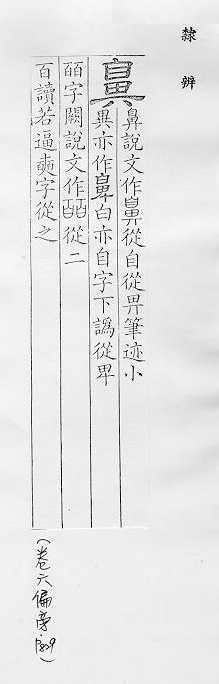 隸辨
鼻 鼻說文作鼻從自從畀筆迹小
異亦作鼻白亦自字下譌從卑
皕字闕說文作皕從二
百讀若逼奭字從之
(卷六偏旁P.829)